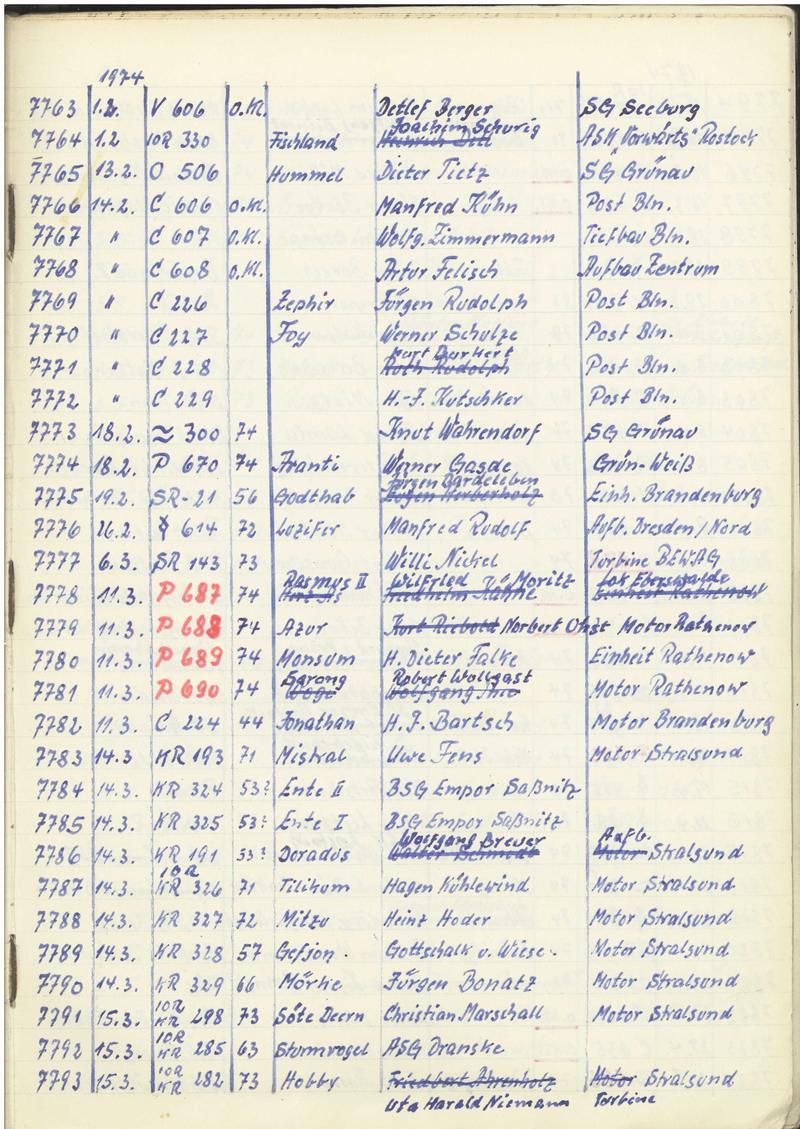 1974
7763 1.2. V 606 o.Kl. Detlef Berger SG Seeburg
Joachim Schurig
7764 1.2 10R 330 Fischland ASK "Vorwärts" Rostock
7765 13.2. O 506 Hummel Dieter Tietz SG Grünau
7766 14.2. C 606 o.Kl. Manfred Kühn Post Bln.
7767 " C 607 o.Kl. Wolfg. Zimmermann Tiefbau Bln.
7768 " C 608 o.Kl. Artur Felisch Aufbau Zentrum
7769 " C 226 Zephir Jürgen Rudolph Post Bln.
7770 " C 227 Foy Werner Schulze Post Bln.
Kurt Burkert
7771 " C 228 Ruth Rudolph Post Bln.
7772 " C 229 H.-J. Kutschker Post Bln.
7773 18.2. ≈ 300 74 Knut Wahrendorf SG Grünau
7774 18.2. P 670 74 Avanti Werner Gasde Grün-Weiß
Jürgen Bardeleben
7775 19.2. SR-21 56 Godthab Eugen Herberholz Einh. Brandenburg
7776 26.2. 614 72 Luzifer Manfred Rudolf Aufb. Dresden/Nord
7777 6.3. SR 143 73 Willi Nickel Turbine BEWAG
Rasmus II Wilfried Moritz Lok Eberswalde
7778 11.3. P 687 74 Friedhelm Kähne Einheit Rathenow
7779 11.3. P 688 74 Azur Kurt Riebold Norbert Ohst Motor Rathenow
7780 11.3. P 689 74 Monsum H. Dieter Falke Einheit Rathenow
Sarong Robert Wollgast
7781 11.3. P 690 74 Woge Wolfgang Motor Rathenow
7782 11.3. C 224 44 Jonathan H. J. Bartsch Motor Brandenburg
7783 14.3. KR 193 71 Mistral Uwe Fens Motor Stralsund
7784 14.3. KR 324 53? Ente II BSG Empor Saßnitz
7785 14.3. KR 325 53? Ente I BSG Empor Saßnitz
Wolfgang Brewer Aufb.
7786 14.3. KR 191 53? Dorados Walter Schmidt Motor Stralsund
10R
7787 14.3. KR 326 71 Tilikum Hagen Kühlewind Motor Stralsund
7788 14.3. KR 327 72 Mitzu Heinz Hoder Motor Stralsund
7789 14.3. KR 328 57 Gefjon. Gottschalk v. Wiese. Motor Stralsund
7790 14.3. KR 329 66 Mörke Jürgen Bonatz Motor Stralsund
10R
7791 15.3. KR 298 73 Söte Deern Christian Marschall Motor Stralsund
10R
7792 15.3. KR 285 63 Sturmvogel ASG Dranske
10R
7793 15.3. KR 282 73 Hobby Friedbert Ahrenholz Motor Stralsund
Uta Harald Niemann Turbine